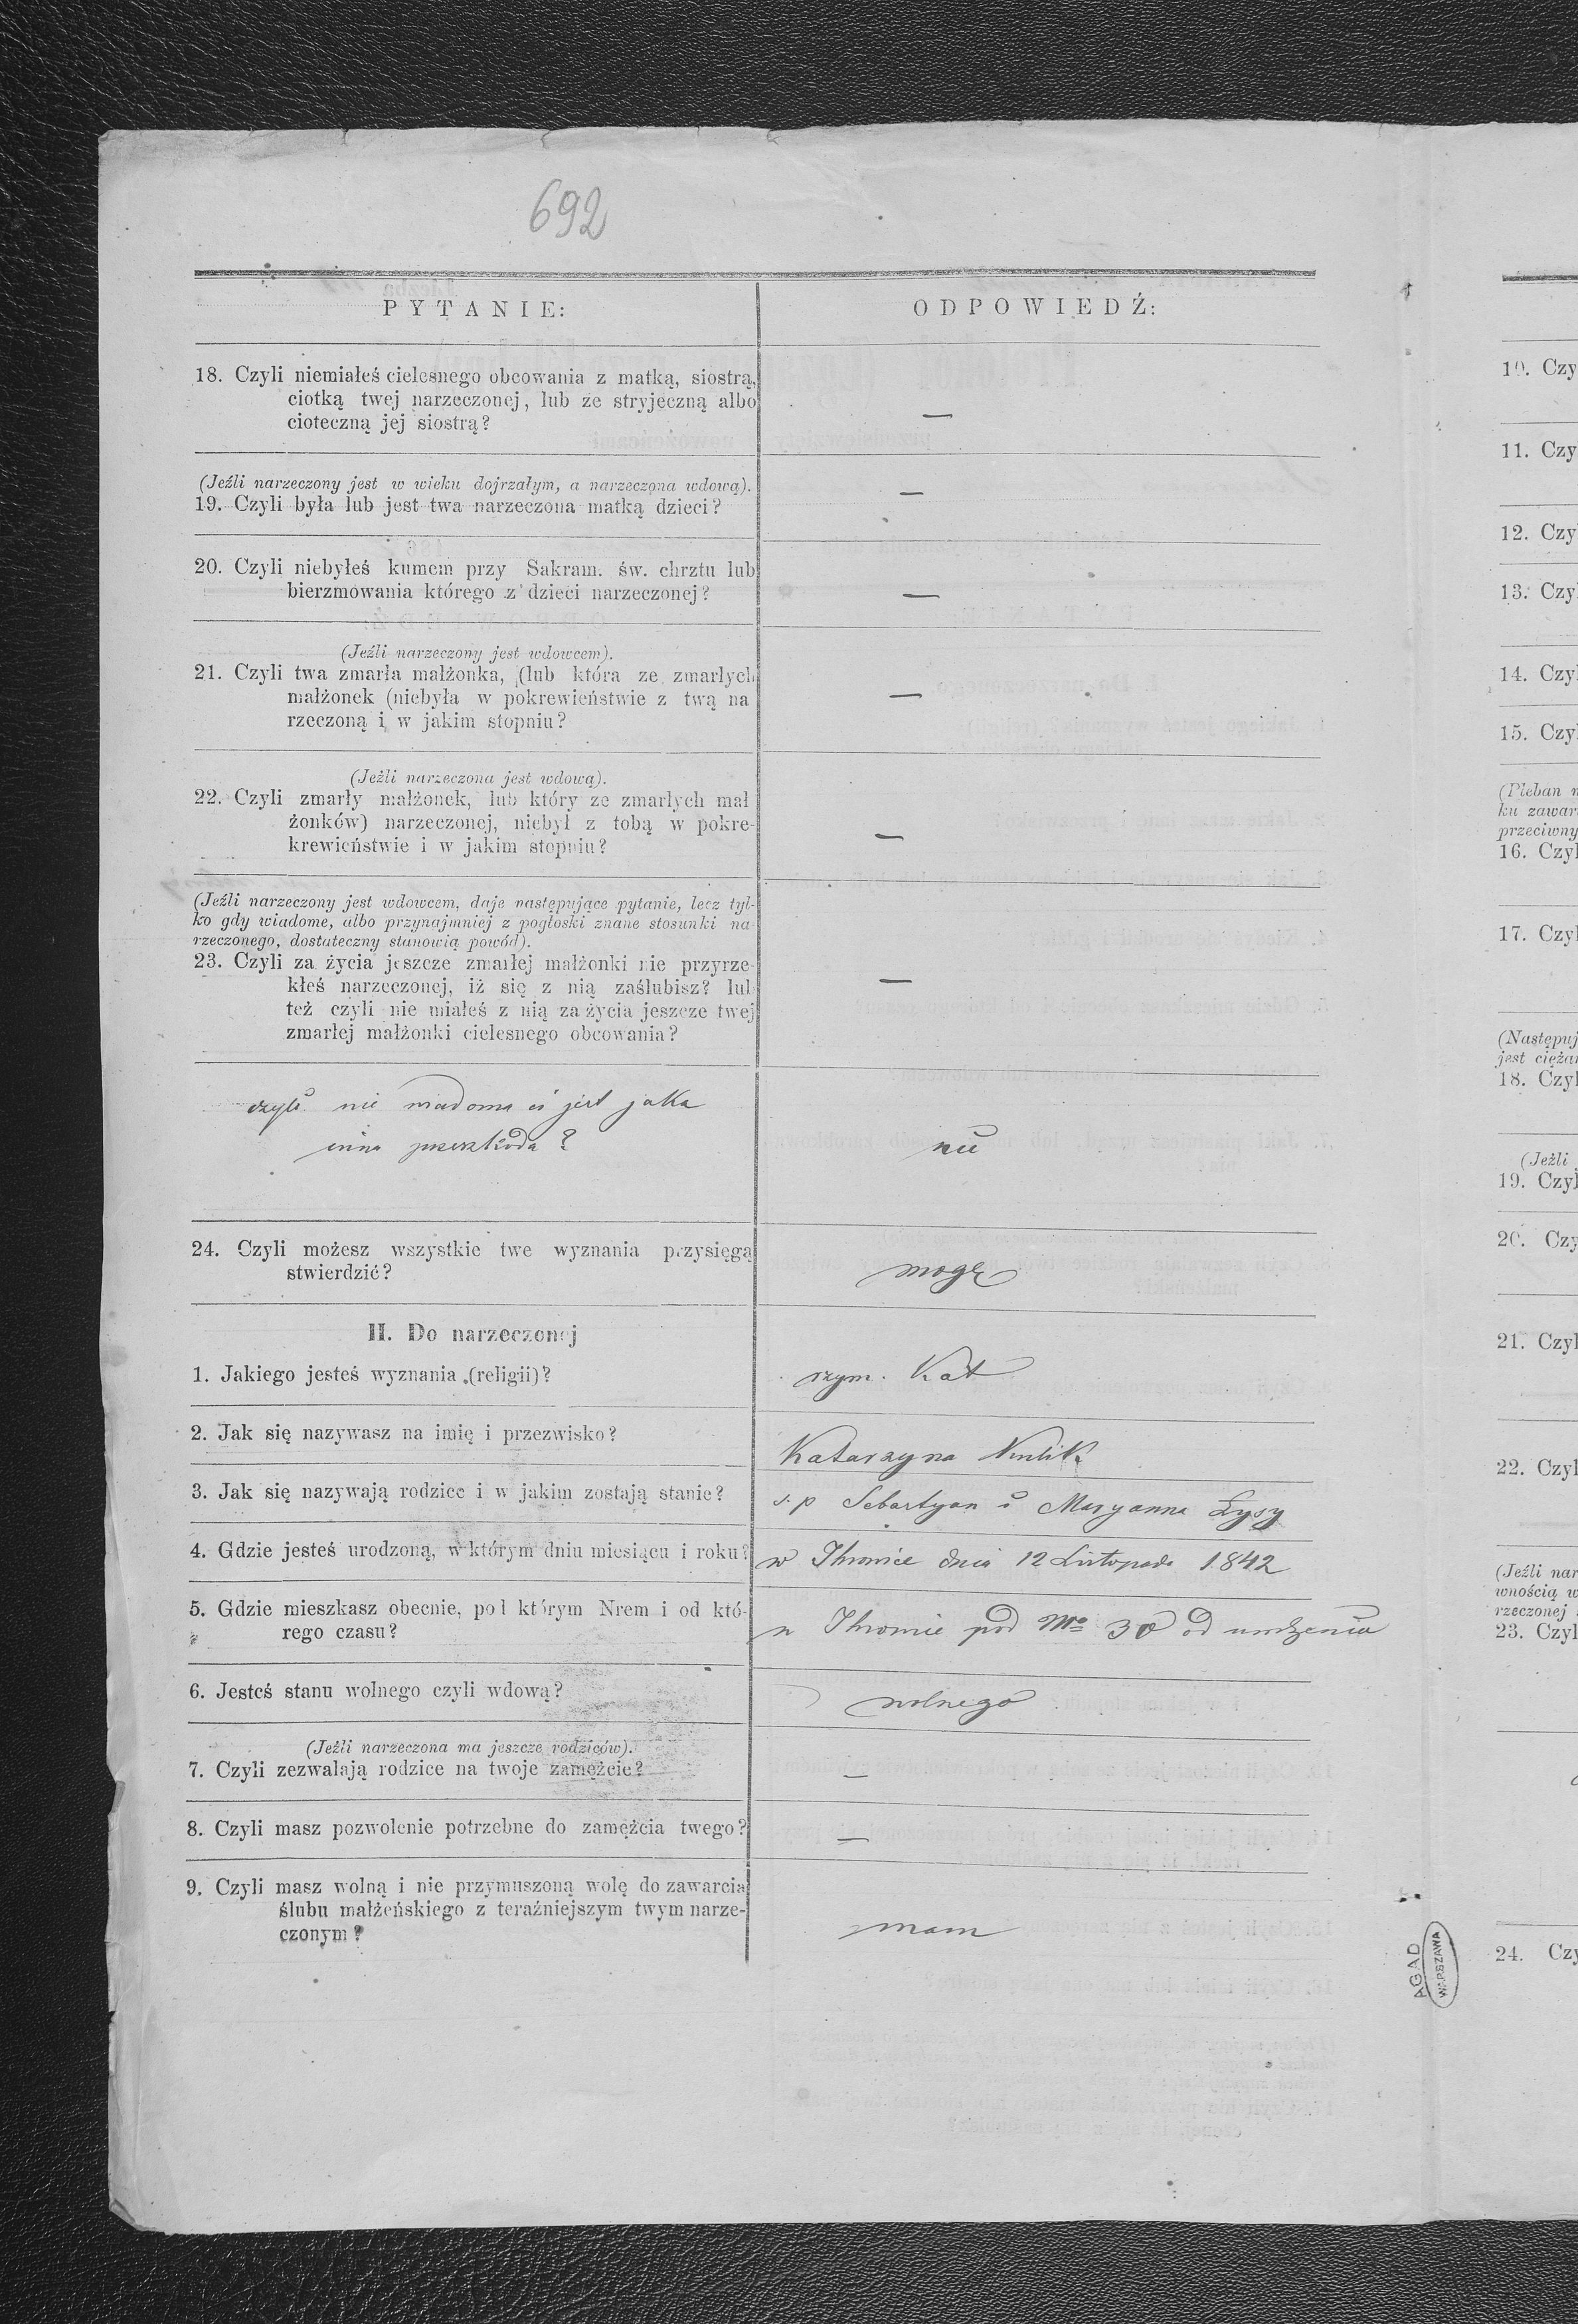 692
PYTANIE:
ODPOWIEDŹ:
18. Czyli niemiałeś cielesnego obcowania z matką, siostrą,
ciotką twej narzeczonej, lub ze stryjeczną albo
cioteczną jej siostrą?
—
(Jeźli narzeczony jest w wieku dojrzałym, a narzeczona wdową).
19. Czyli była lub jest twa narzeczona matką dzieci?
—
20. Czyli niebyłeś kumem przy Sakram. św. chrztu lub
bierzmowania którego z dzieci narzeczonej?
—
(Jeźli narzeczony jest wdowcem).
21. Czyli twa zmarła małżonka, (lub która ze zmarłych
małżonek (niebyła w pokrewieństwie z twą na
rzeczoną i w jakim stopniu?
—
(Jeźli narzeczona jest wdową).
22. Czyli zmarły małżonek, lub który ze zmarłych mał
żonków) narzeczonej, niebył z tobą w pokre-
krewieństwie i w jakim stopniu?
—
(Jeźli narzeczony jest wdowcem, daje następujące pytanie, lecz tyl-
ko gdy wiadome, albo przynajmniej z pogłoski znane stosunki na
rzeczonego, dostateczny stanowią powód).
23. Czyli za życia jeszcze zmarłej małżonki nie przyrze-
kłeś narzeczonej, iż się z nią zaślubisz? lub
też czyli nie miałeś z nią za życia jeszcze twej
zmarłej małżonki cielesnego obcowania?
—
czyli nie wiadoma ci jest jaka
inna przeszkoda?
nie
24. Czyli możesz wszystkie twe wyznania przysięgą
stwierdzić?
mogę
II. Do narzeczonej
1. Jakiego jesteś wyznania (religii)?
rzym. Kat
2. Jak się nazywasz na imię i przezwisko?
Katarzyna
3. Jak się nazywają rodzice i w jakim zostają stanie?
s. p Sebastyan i Maryanna Łysy
4. Gdzie jesteś urodzoną, w którym dniu miesiącu i roku?
w dnia 12 Listopada 1842
5. Gdzie mieszkasz obecnie, pod którym Nrem i od któ-
rego czasu?
w pod No 30 od urodzenia
6. Jesteś stanu wolnego czyli wdową?
wolnego
(Jeźli narzeczona ma jeszcze rodziców).
7. Czyli zezwalają rodzice na twoje zamężcie?
—
8. Czyli masz pozwolenie potrzebne do zamężcia twego?
—
9. Czyli masz wolną i nie przymuszoną wolę do zawarcia
ślubu małżeńskiego z teraźniejszym twym narze-
czonym?
mam
AGAD
WARSZAWA
10. Czy
11. Czy
12. Czy
13. Czy
14. Czy
15. Czy
(Pleban
ku zawar
przeciwny
16. Czyl
17. Czyl
(Następuj
jest cięża
18. Czyl
(Jeźli
19. Czyl
20. Czy
21. Czyl
22. Czyl
(Jeźli nar
wnością w
rzeczonej
23. Czyl
24. Czy